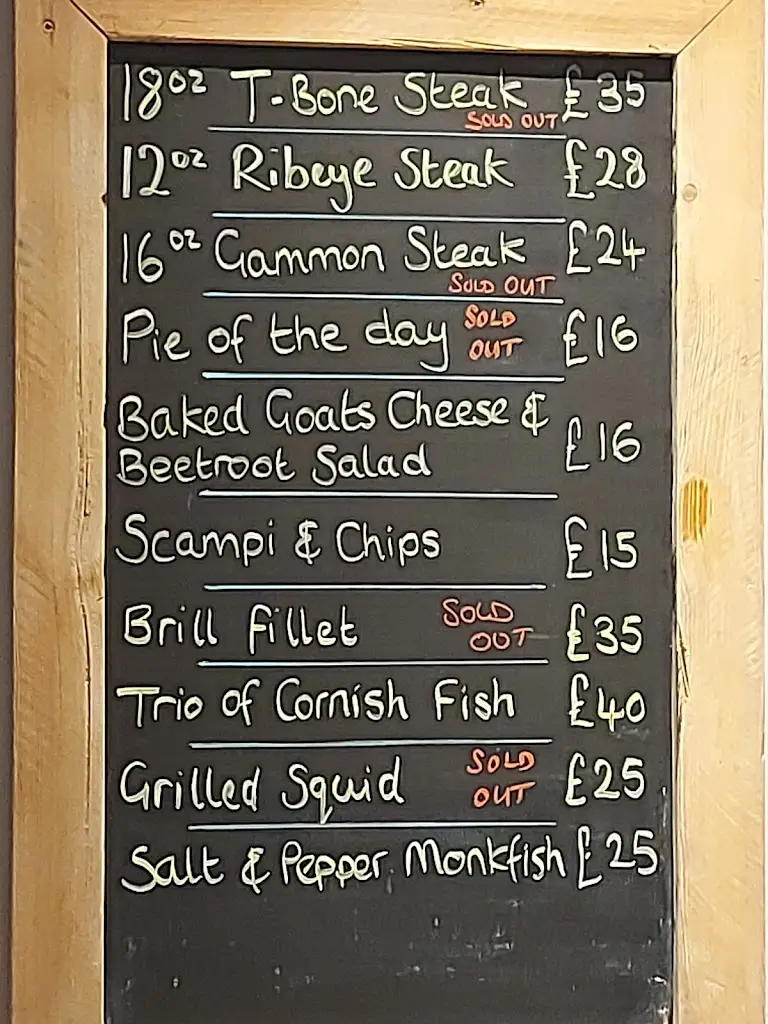 18oz T-Bone Steak £35
SOLD OUT
12oz Ribeye Steak £28
16oz Gammon Steak £24
SOLD OUT
Pie of the day SOLD OUT £16
Baked Goats Cheese &
Beetroot Salad £16
Scampi & Chips £15
Brill fillet SOLD OUT £35
Trio of Cornish Fish £40
Grilled Squid SOLD OUT £25
Salt & Pepper Monkfish £25